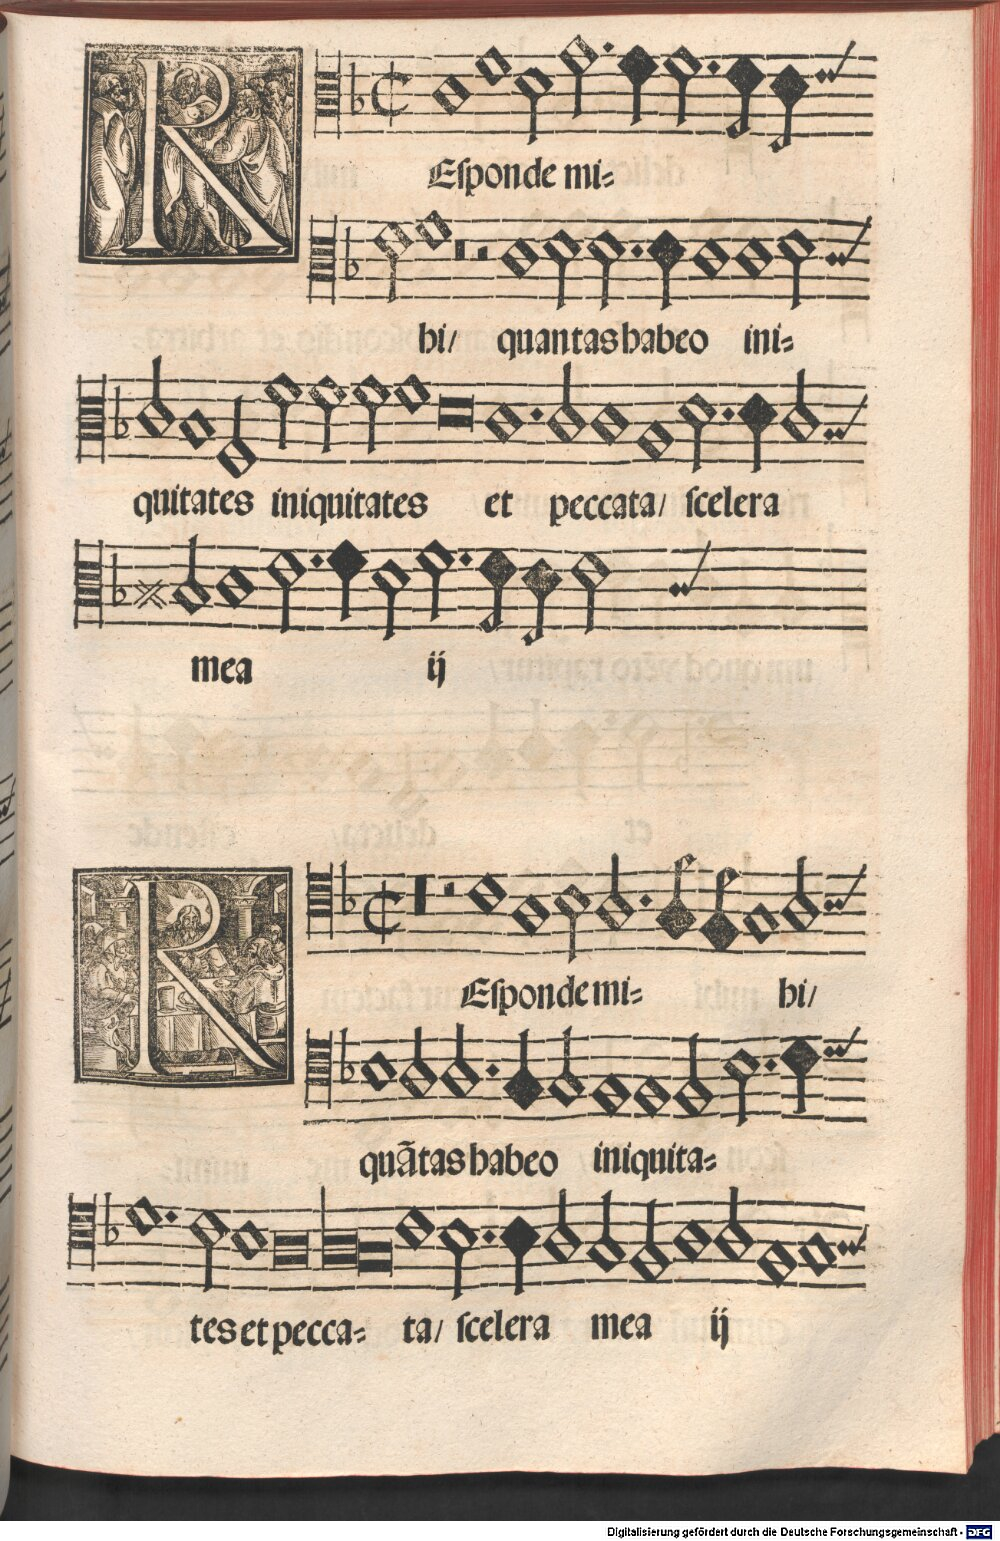 REſponde mi⸗
hi/ quantas habeo ini⸗
quitates iniquitates et peccata/ ſcelera
mea ij
REſponde mi⸗ hi/
quãtas habeo iniquita⸗
tes et pecca⸗ ta/ ſcelera mea ij
Digitalisierung gefördert durch die Deutsche Forschungsgemeinschaft - DFG